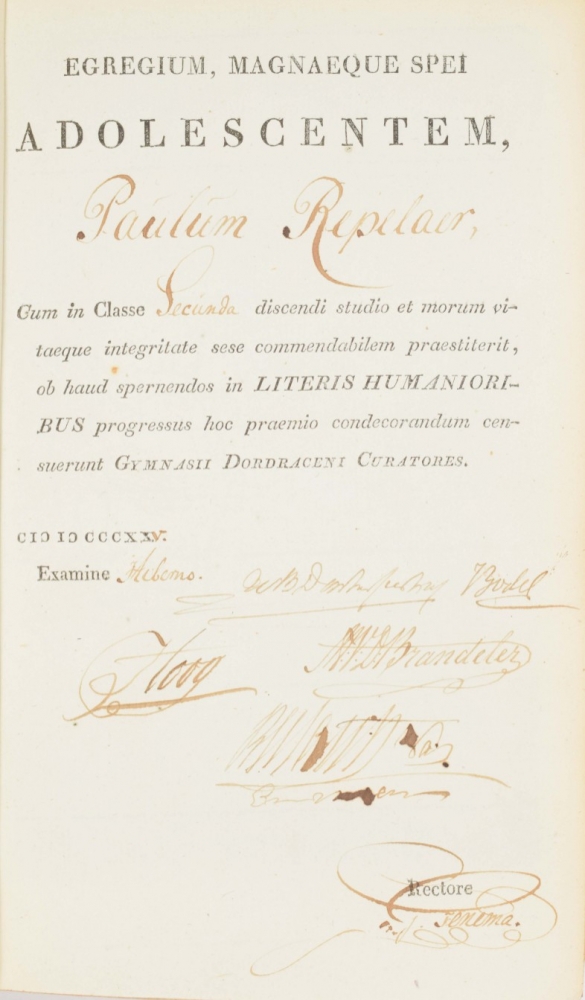 EGREGIUM, MAGNAEQUE SPEI
ADOLESCENTEM,
Paulum Repelaer,
Cum in Classe Secunda discendi studio et morum vi-
taeque integritate sese commendabilem praestiterit,
ob haud spernendos in LITERIS HUMANIORI-
BUS progressus hoc praemio condecorandum cen-
suerunt GYMNASII DORDRACENI CURATORES.
CIↃ IↃ CCCXXV.
Examine Hiberno.
Hoog
Brandeler
Rectore